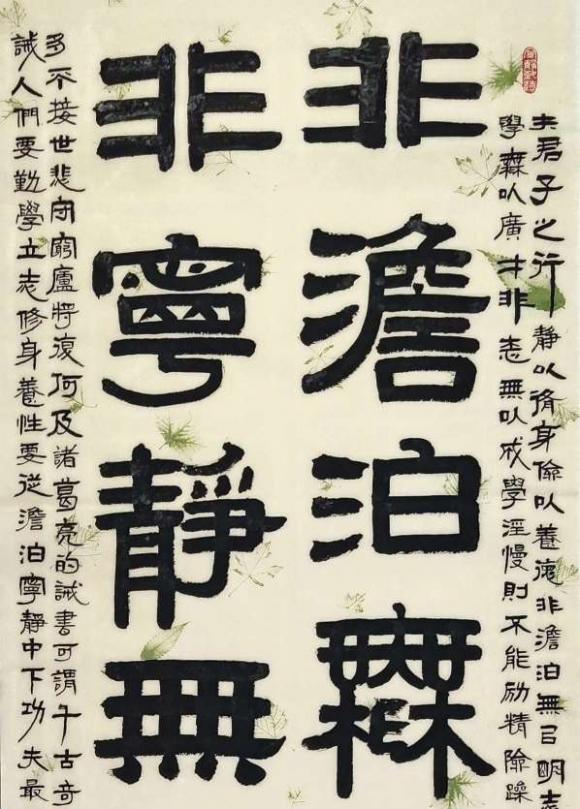 夫君子之行靜以脩身儉以養德非澹泊無㠯明志
學橆以廣才非志無以成學淫慢則不能励精險躁
非澹泊橆
非寧靜無
多不接世悲守窮廬將復何及諸葛亮的誡書可謂千古奇
誡人們要勤學立志修身養性要從澹泊寧靜中下功夫最